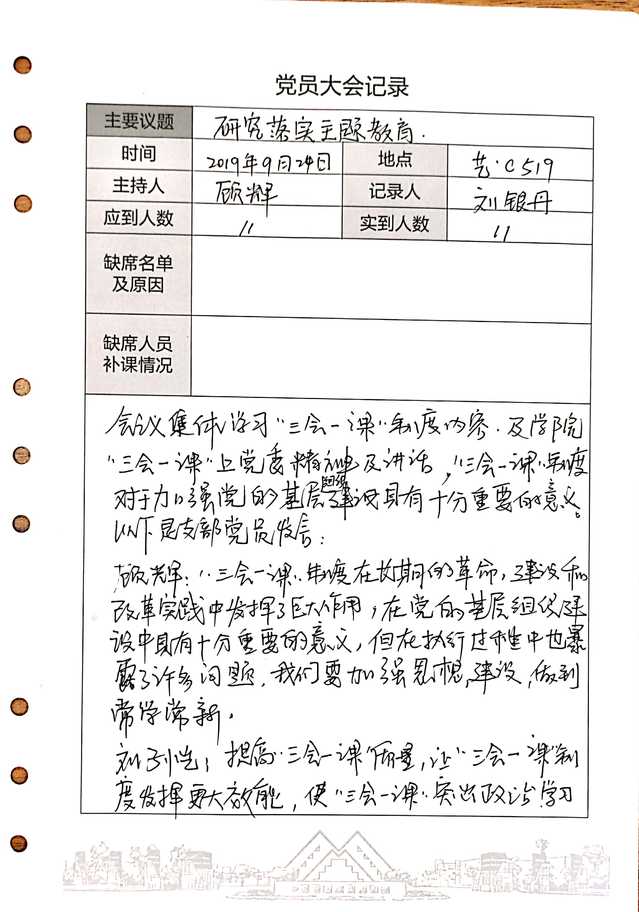 党员大会记录
主要议题 研究落实主题教育.
时间 2019年9月24日 地点 艺·C519
主持人 顾辉 记录人 刘银丹
应到人数 11 实到人数 11
缺席名单
及原因
缺席人员
补课情况
会议集体学习“三会一课”制度内容.及学院
“三会一课”上党委精神及讲话,“三会一课”制度
对于加强党的基层组织建设具有十分重要的意义。
以下是支部党员发言:
顾辉:“三会一课”制度在长期的革命,建设和
改革实践中发挥了巨大作用,在党的基层组织建
设中具有十分重要的意义,但在执行过程中也暴
露了许多问题.我们要加强思想建设,做到
常学常新。
刘:提高“三会一课”质量,让“三会一课”制
度发挥更大效能,使“三会一课”突出政治学习